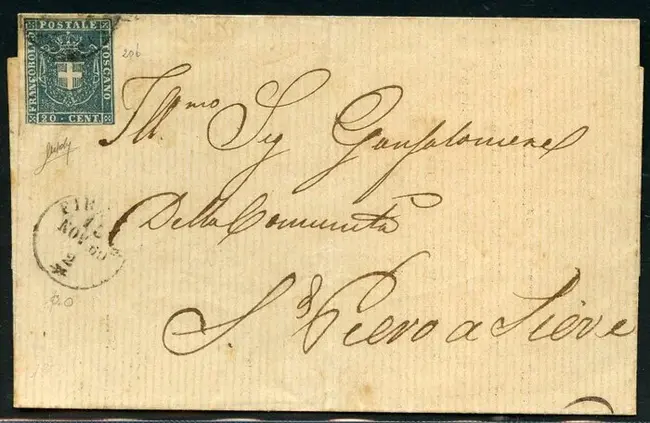 POSTALE
FRANCOBOLLO
TOSCANO
20 CENT
20b
Ill.mo Sig Gonfaloniere
Della Comunità
S. Piero a Sieve
FIR
13
NOV 60
2
20